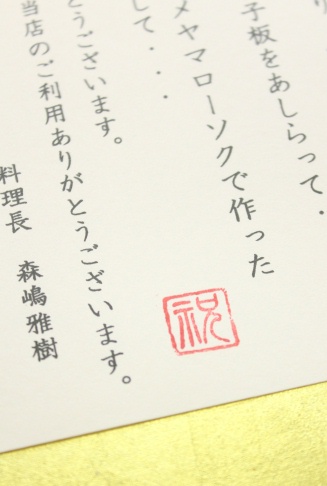 り
子板をあしらって・
メヤマローソクで作った
して・・・
とうございます。
当店のご利用ありがとうございます。
料理長 森嶋雅樹
祝